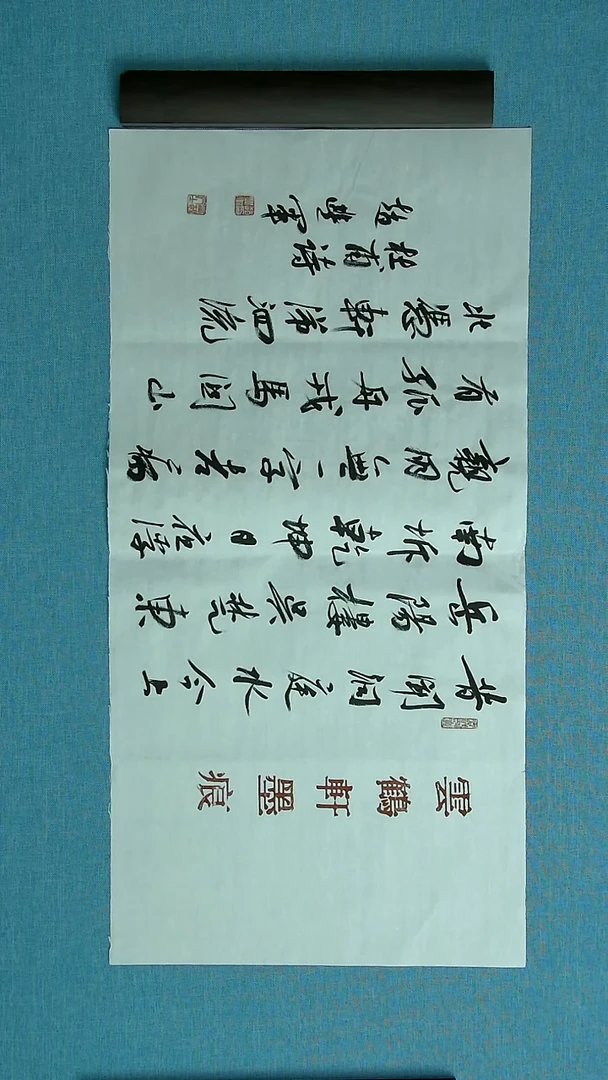 雲鶴軒墨痕
昔聞洞庭水今上
岳陽樓吳楚東
南坼乾坤日夜浮
親朋無一字老病
有孤舟戎馬關山
北憑軒涕泗流
杜甫詩